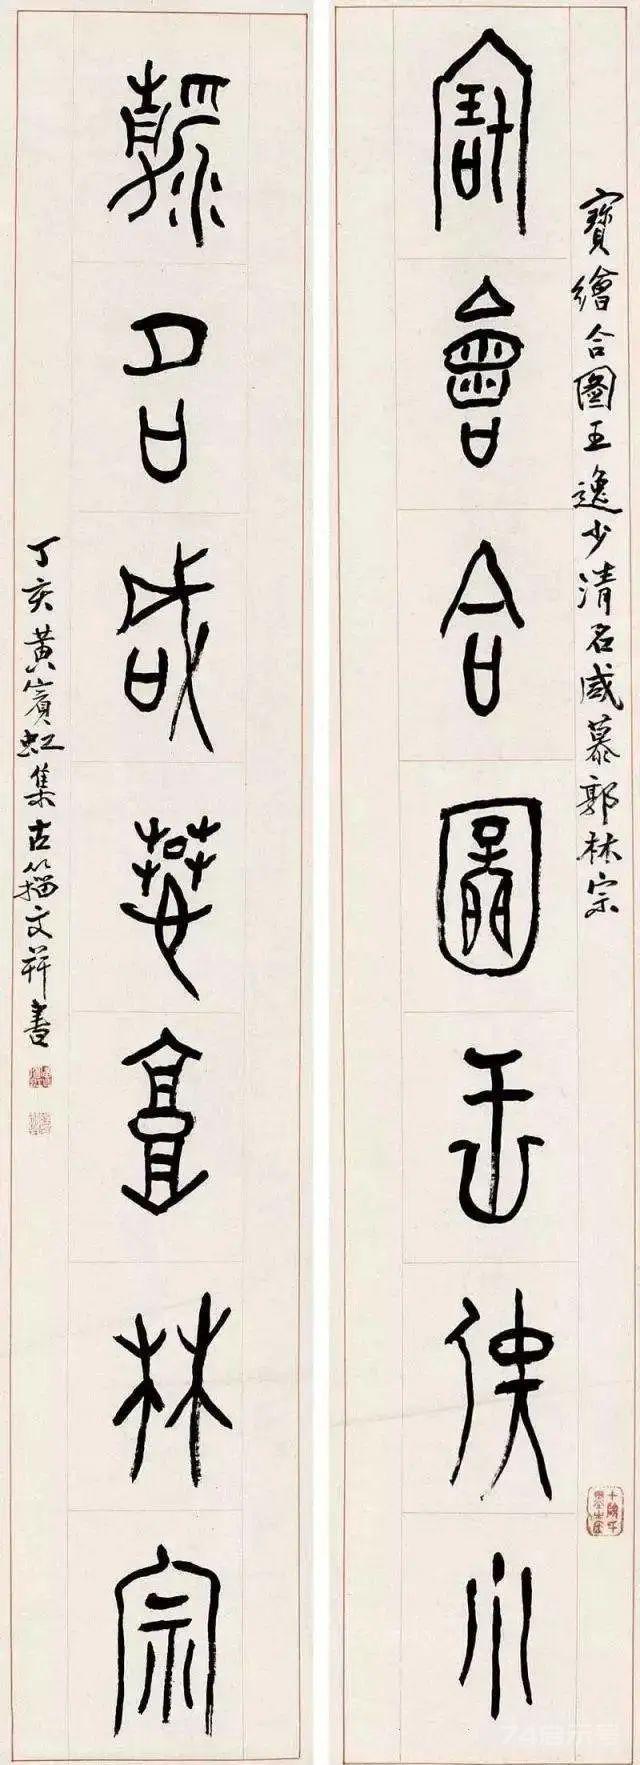 寶繪合圖王逸少清名咸慕郭林宗
寶會合圖王逸少
清名咸慕郭林宗
丁亥黃賓虹集古籀文并書
74启示号